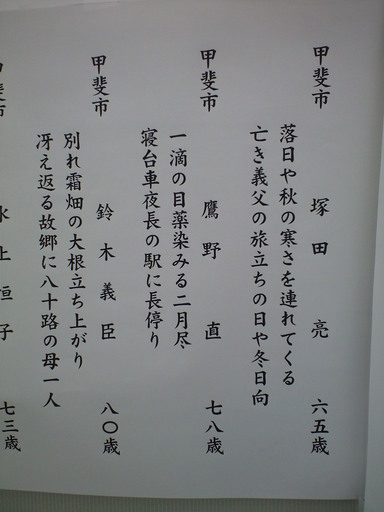 甲斐市 塚田 亮 六五歳
落日や秋の寒さを連れてくる
亡き義父の旅立ちの日や冬日向
甲斐市 鷹野 直 七八歳
一滴の目薬染みる二月尽
寝台車夜長の駅に長停り
甲斐市 鈴木義臣 八〇歳
別れ霜畑の大根立ち上がり
冴え返る故郷に八十路の母一人
甲斐市 水上恒子 七三歳